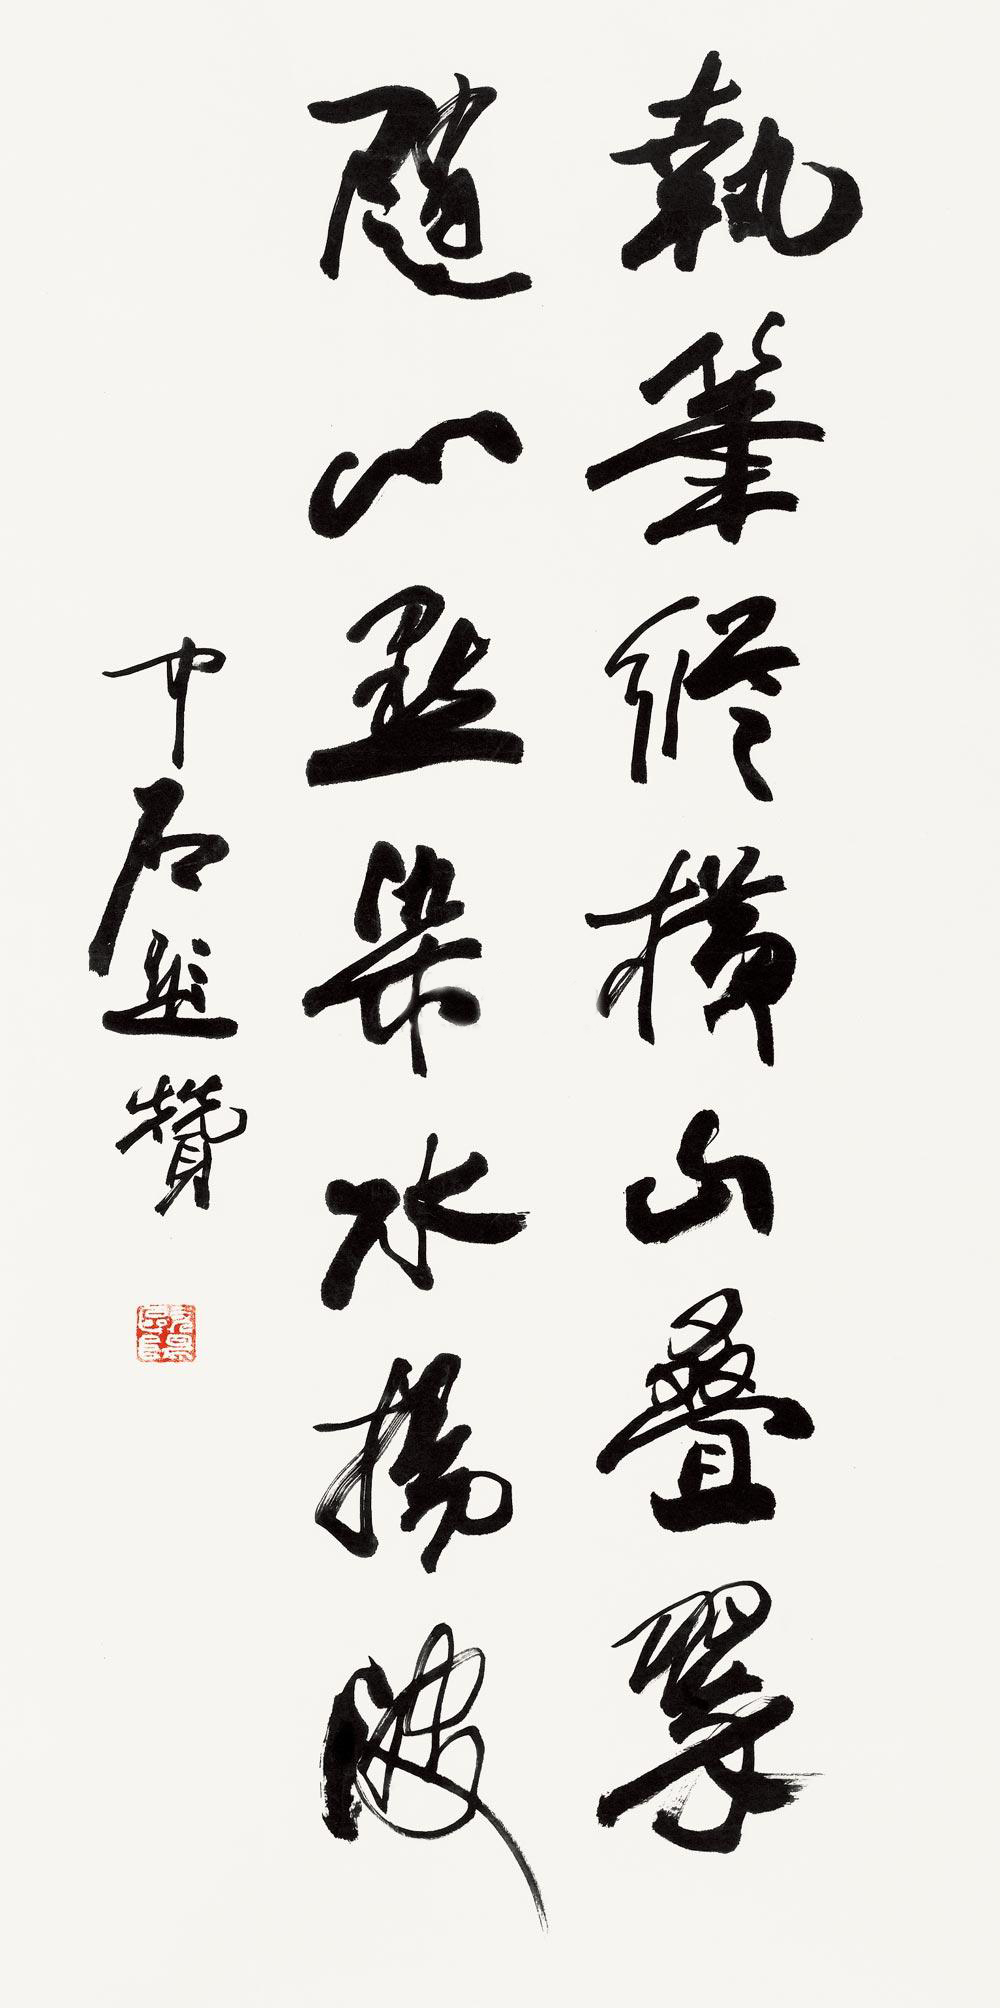 執筆縱橫山疊翠
隨心點染水揚波
中石並贊